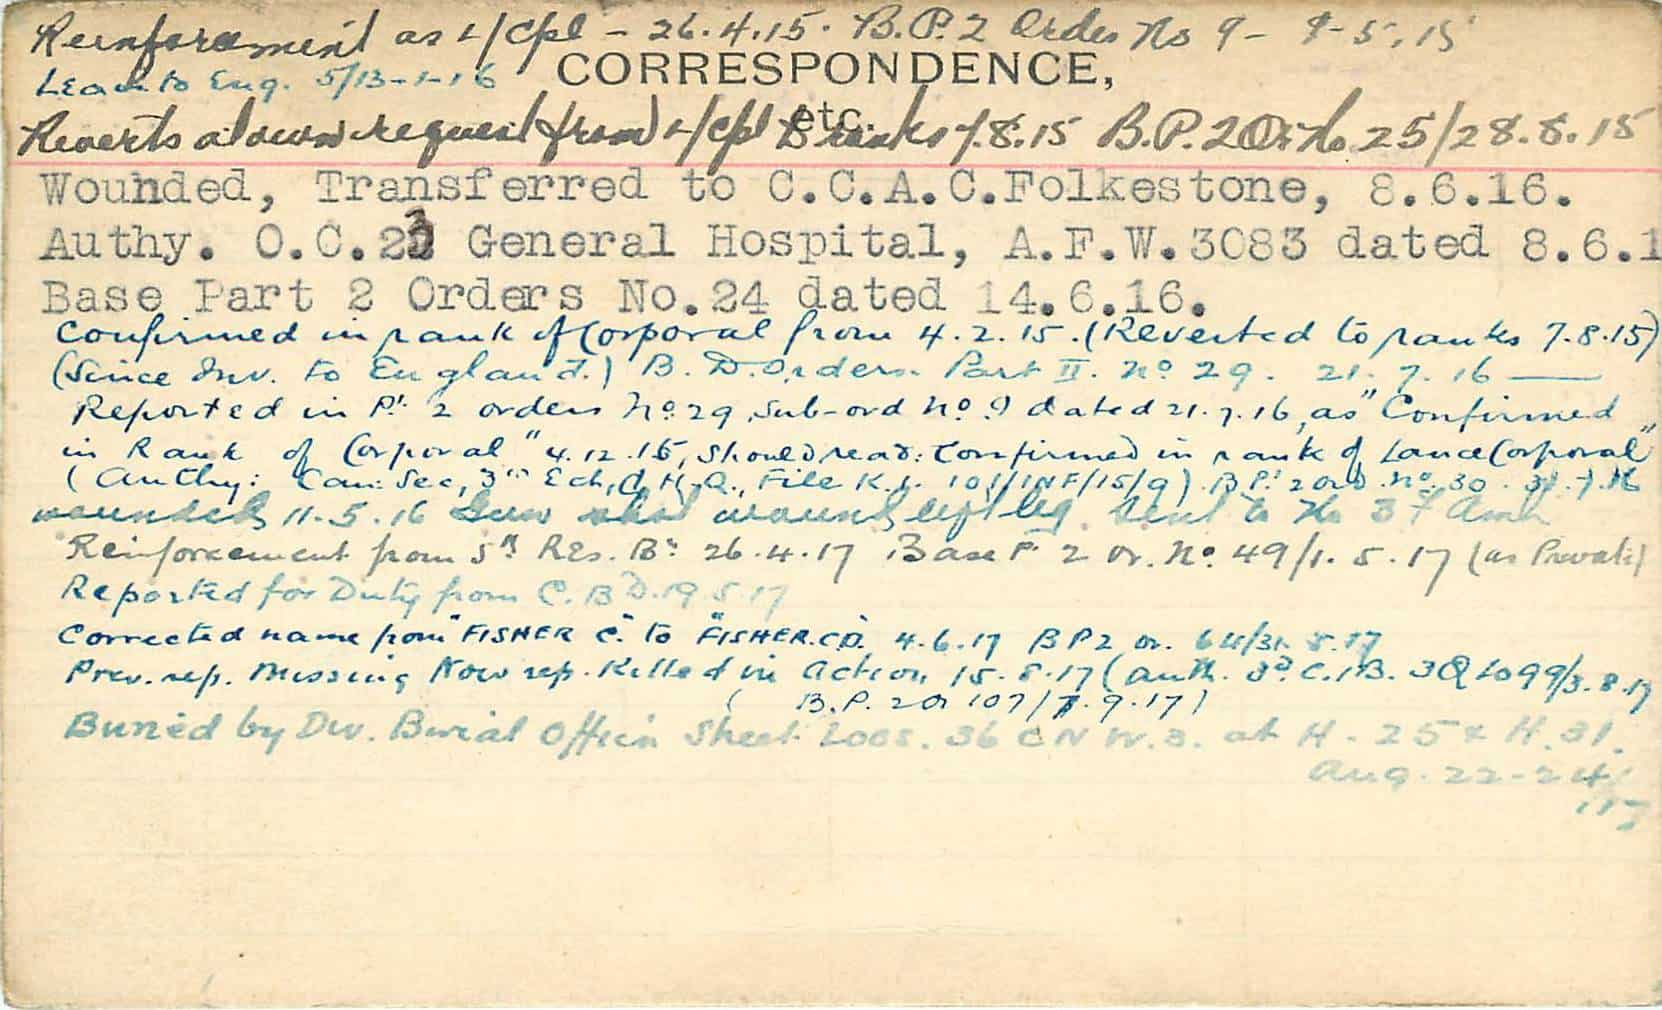 Reinforcement as L/Cpl - 26.4.15. B.P. 2 Order No 9 - 9-5.15
CORRESPONDENCE,
Leave to Eng. 5/13-1-16
etc.
Reverts at own request from L/Cpl to ranks 7.8.15 B.P. 2 Or No 25/28.8.15
Wounded, Transferred to C.C.A.C.Folkestone, 8.6.16.
Authy. O.C.23 General Hospital, A.F.W.3083 dated 8.6.1
Base Part 2 Orders No.24 dated 14.6.16.
Confirmed in rank of Corporal from 4.2.15. (Reverted to ranks 7.8.15)
(Since Inv. to England.) B.D. Orders. Part II. No 29. 21.7.16
Reported in Pt 2 orders No. 29, Sub-ord No. 9 dated 21.7.16, as "Confirmed
in Rank of Corporal" 4.12.15, should read: Confirmed in rank of Lance Corporal"
(Authy: Can: Sec, 3rd Ech, G.H.Q., File K.1. 101/INF/15/9) B.Pt 2 ord. No. 30. 31.7.16
wounded 11.5.16 Gun shot wound left leg. Sent to No 3 F Amb
Reinforcement from 5th Res. Bn 26.4.17 Base Pt 2 Or. No. 49/1.5.17 (as Private)
Reported for Duty from C.B.D. 19.5.17
Corrected name from "FISHER C." to "FISHER. C.D." 4.6.17 BP2 Or. 64/31.5.17
Prev. rep. Missing Now rep. Killed in Action, 15.8.17 (Auth. 3rd C.I.B. 3Q 1099/3.8.17
( B.P. 2 Or 107/7.9.17)
Buried by Div. Burial Officer Sheet Loos. 36 C N W.3. at H.25 & H.31.
Aug. 22-24
'17